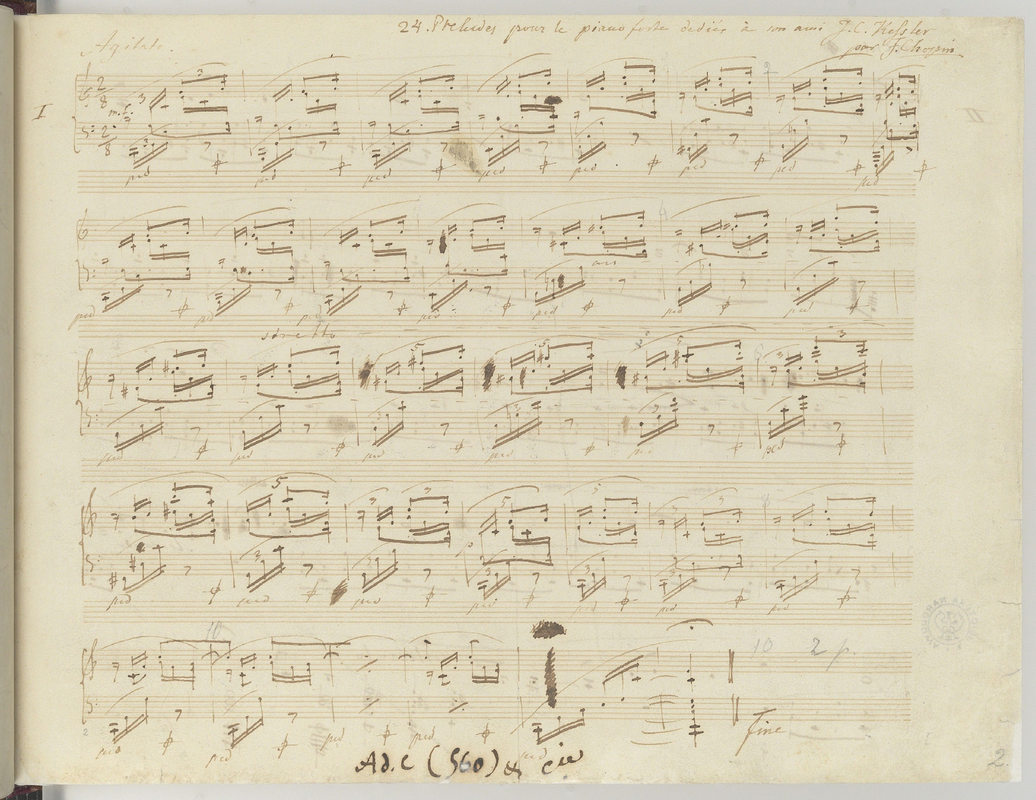 24. Preludes pour le pianoforte dediés à son ami J. C. Kessler
par F. Chopin
Agitato.
I
2/8
m.f.
3 3
2/8
ped ped ped ped ped ped ped ped
ped ped ped ped ped ped ped
stretto
5 5 5 3 3
ped ped ped ped ped ped
5 3 3 5 5 3
ped ped ped ped ped ped ped
10
10 2 p.
ped ped ped ped ped
fine
Ad. C (560) & cie
2.